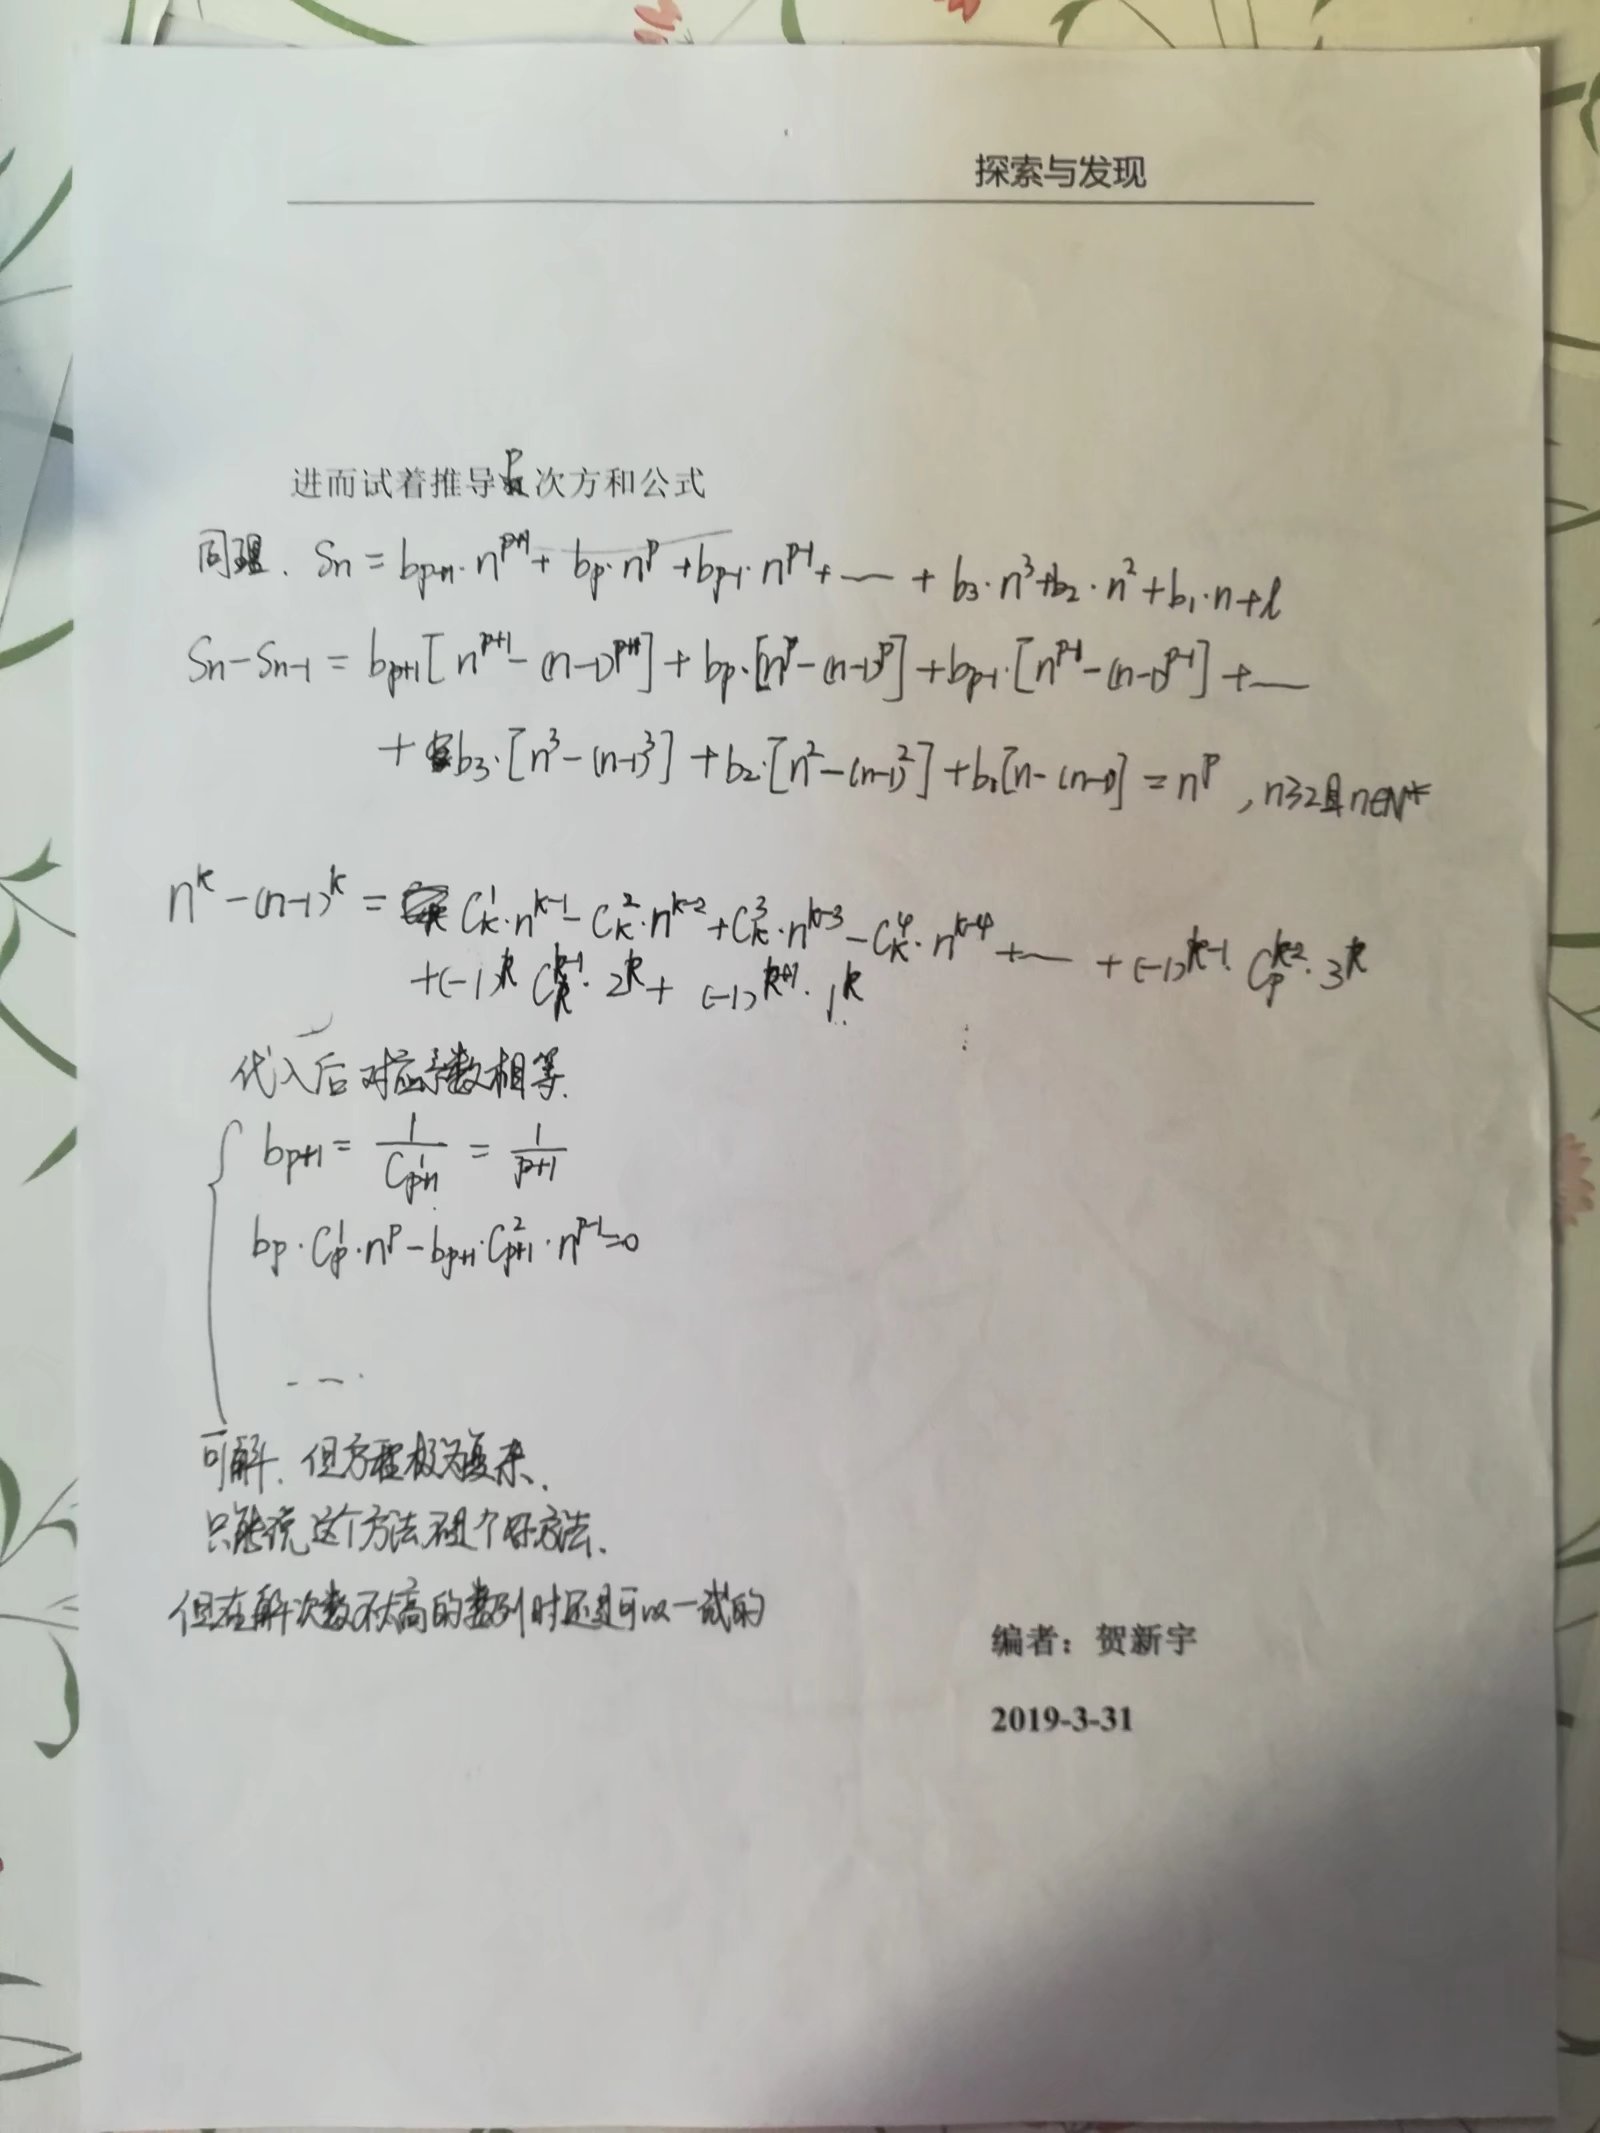 探索与发现
进而试着推导p次方和公式
同理. Sn = bp+1·n^(p+1) + bp·n^p + bp-1·n^(p-1) + —— + b3·n^3 + b2·n^2 + b1·n + l
Sn-Sn-1 = bp+1[n^(p+1)-(n-1)^(p+1)] + bp·[n^p-(n-1)^p] + bp-1·[n^(p-1)-(n-1)^(p-1)] + ——
+ b3·[n^3-(n-1)^3] + b2·[n^2-(n-1)^2] + b1[n-(n-1)] = n^p , n≥2且n∈N*
n^k-(n-1)^k = C_k^1·n^(k-1) - C_k^2·n^(k-2) + C_k^3·n^(k-3) - C_k^4·n^(k-4) + —— + (-1)^(k-1)·C_p^(k-2)·3^k
+(-1)^k C_k^(k-1)·2^k + (-1)^(k+1)·1^k
代入后对应系数相等.
bp+1 = 1/C_(p+1)^1 = 1/(p+1)
bp·C_p^1·n^p - bp+1·C_(p+1)^2·n^(p-1) = 0
---
可解. 但方程极为复杂.
只能说这个方法不是个好方法.
但在解次数不太高的数列时还是可以一试的
编者：贺新宇
2019-3-31